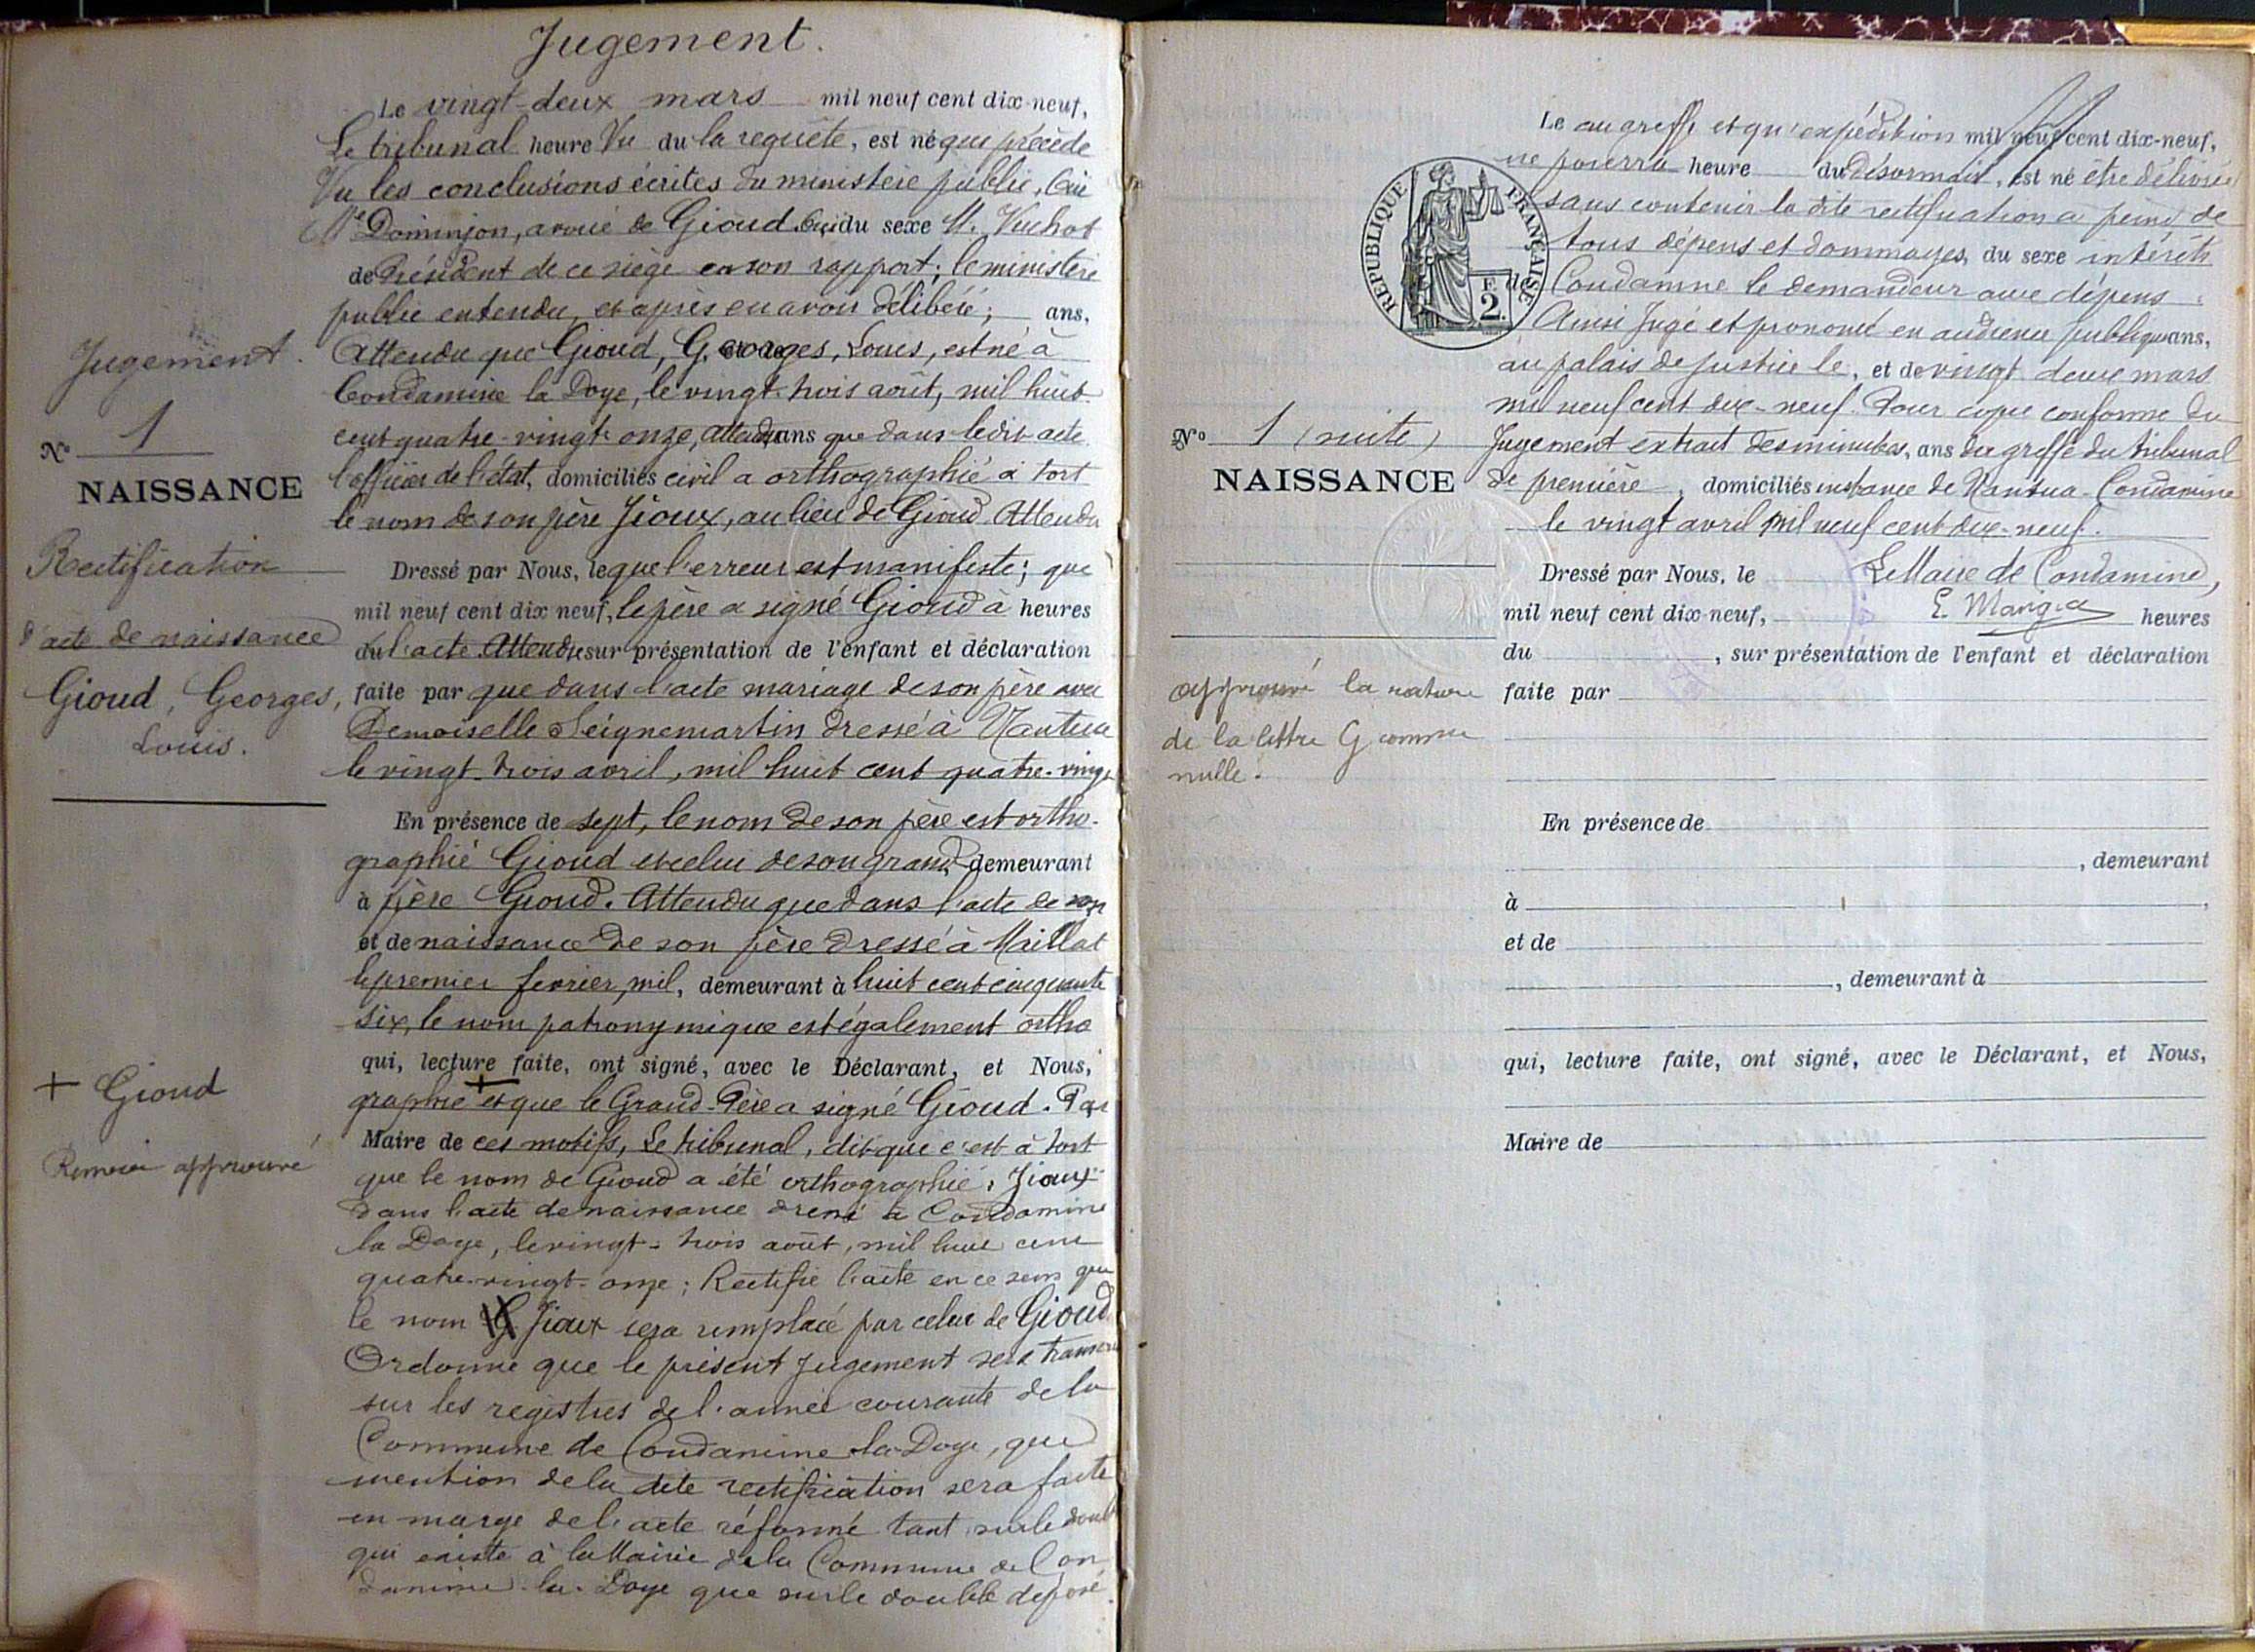 Jugement.
Le vingt-deux mars mil neuf cent dix-neuf,
Le tribunal heure Vu du la requête, est né que précède
Vu les conclusions écrites du ministère public, Oui
Me Dominjon, avoué de Gioud. Oui du sexe M. Vuchot
de Président de ce siège en son rapport; le ministère
public entendu, et après en avoir délibéré; ans,
Attendu que Gioud, Georges, Louis, est né à
Condamine la Doye, le vingt-trois août, mil huit
cent quatre-vingt-onze, attendu ans que dans ledit acte
l'officier de l'état, domiciliés civil a orthographié à tort
le nom de son père Jioux, au lieu de Gioud. Attendu
Jugement.
No 1
NAISSANCE
Rectification
d'acte de naissance
Gioud, Georges,
Louis.
Dressé par Nous, le que l'erreur est manifeste; que
mil neuf cent dix neuf, le père a signé Gioud à heures
du l'acte. Attendu sur présentation de l'enfant et déclaration
faite par que dans l'acte mariage de son père avec
Demoiselle Seignemartin dressé à Nantua
le vingt-trois avril, mil huit cent quatre-vingt
En présence de sept, le nom de son père est ortho-
graphié Gioud et celui de son grand demeurant
à père Gioud. Attendu que dans l'acte de
et de naissance de son père dressé à Maillat
le premier fevrier, mil, demeurant à huit cent cinquante
six, le nom patronymique est également ortho
qui, lecture faite, ont signé, avec le Déclarant, et Nous,
graphié + et que le Grand-Père a signé Gioud. Par
Maire de ces motifs, Le tribunal, dit que c'est à tort
que le nom de Gioud a été orthographié, Jioux
dans l'acte de naissance dressé à Condamine
la Doye, le vingt-trois août, mil huit cent
quatre-vingt-onze; Rectifie l'acte en ce sens que
le nom G Jioux sera remplacé par celui de Gioud
Ordonne que le présent jugement sera transcrit
sur les registres de l'année courante de la
Commune de Condamine la Doye, que
mention de la dite rectification sera faite
en marge de l'acte réformé tant sur le double
qui existe à la Mairie de la Commune de Con
damine-la-Doye que sur le double déposé
+ Gioud
Renvoi approuvé
Le au greffe et qu'expédition mil neuf cent dix-neuf,
ne pourra heure du désormais, est né être délivrée
sans contenir la dite rectification a peine de
tous dépens et dommages, du sexe intérêts
de Condamne le demandeur aux dépens.
Ainsi Jugé et prononcé en audience publique ans,
au palais de justice le, et de vingt deux mars
mil neuf cent dix-neuf. Pour copie conforme du
Jugement extrait des minutes, ans du greffe du tribunal
de première, domiciliés instance de Nantua. Condamine
le vingt avril mil neuf cent dix-neuf.
RÉPUBLIQUE FRANÇAISE
2 F.
No 1 (suite)
NAISSANCE
approuvé la rature
de la lettre G comme
nulle.
Dressé par Nous, le Le Maire de Condamine,
mil neuf cent dix-neuf, heures
du , sur présentation de l'enfant et déclaration
faite par
En présence de
, demeurant
à
et de
, demeurant à
qui, lecture faite, ont signé, avec le Déclarant, et Nous,
Maire de